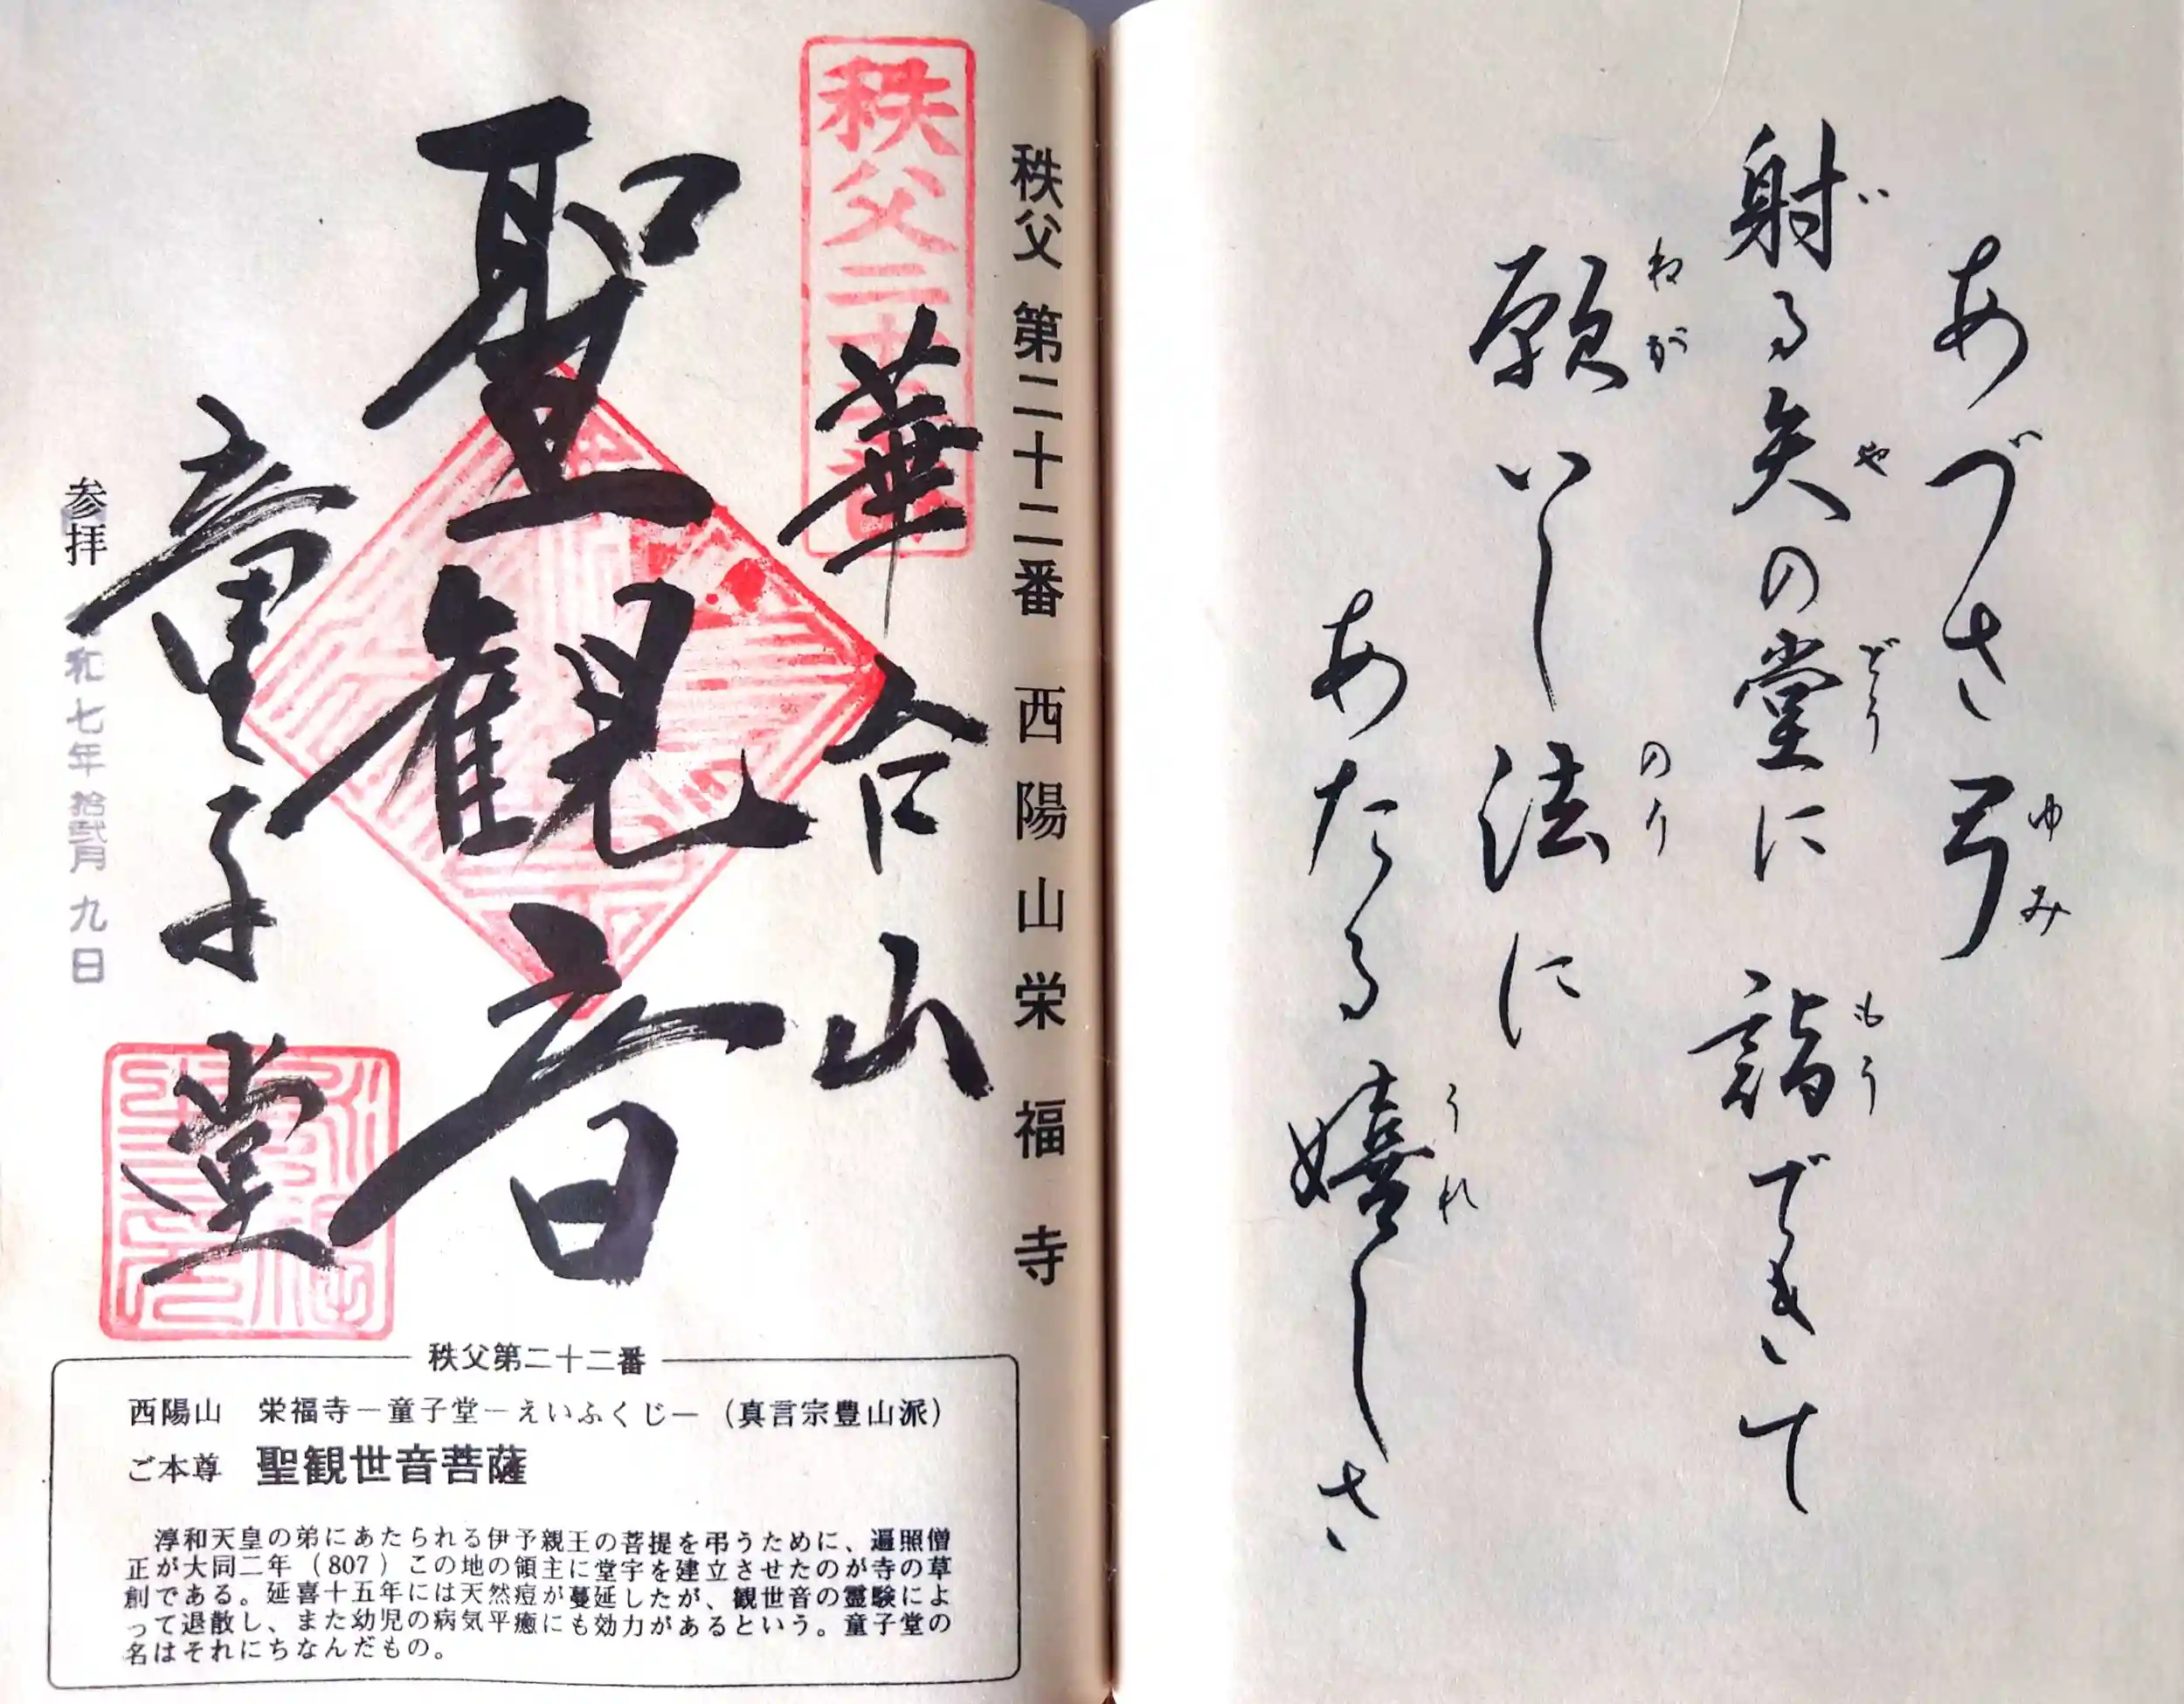 あづさ弓
ゆみ
射る矢の堂に詣できて
い゛
や
どう
もう
願いし法に
ねが
のり
あたる嬉しさ
うれ
秩父 第二十二番 西陽山栄福寺
秩父二十二番
華台山
聖観音
童子堂
参拝 和七年拾弐月九日
秩父第二十二番
西陽山 栄福寺－童子堂－えいふくじ－（真言宗豊山派）
ご本尊 聖観世音菩薩
淳和天皇の弟にあたられる伊予親王の菩提を弔うために、遍照僧
正が大同二年（807）この地の領主に堂宇を建立させたのが寺の草
創である。延喜十五年には天然痘が蔓延したが、観世音の霊験によ
って退散し、また幼児の病気平癒にも効力があるという。童子堂の
名はそれにちなんだもの。